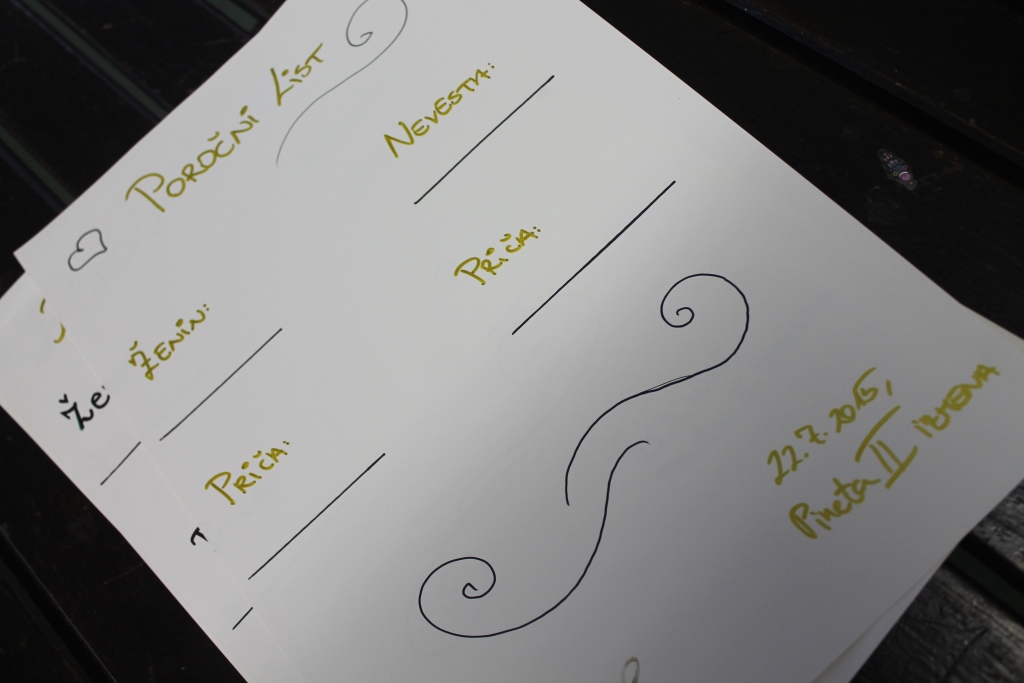 Poročni List
Nevesta:
Priča:
Ženin:
Priča:
Že
22.7.2015,
Pineta II izmena